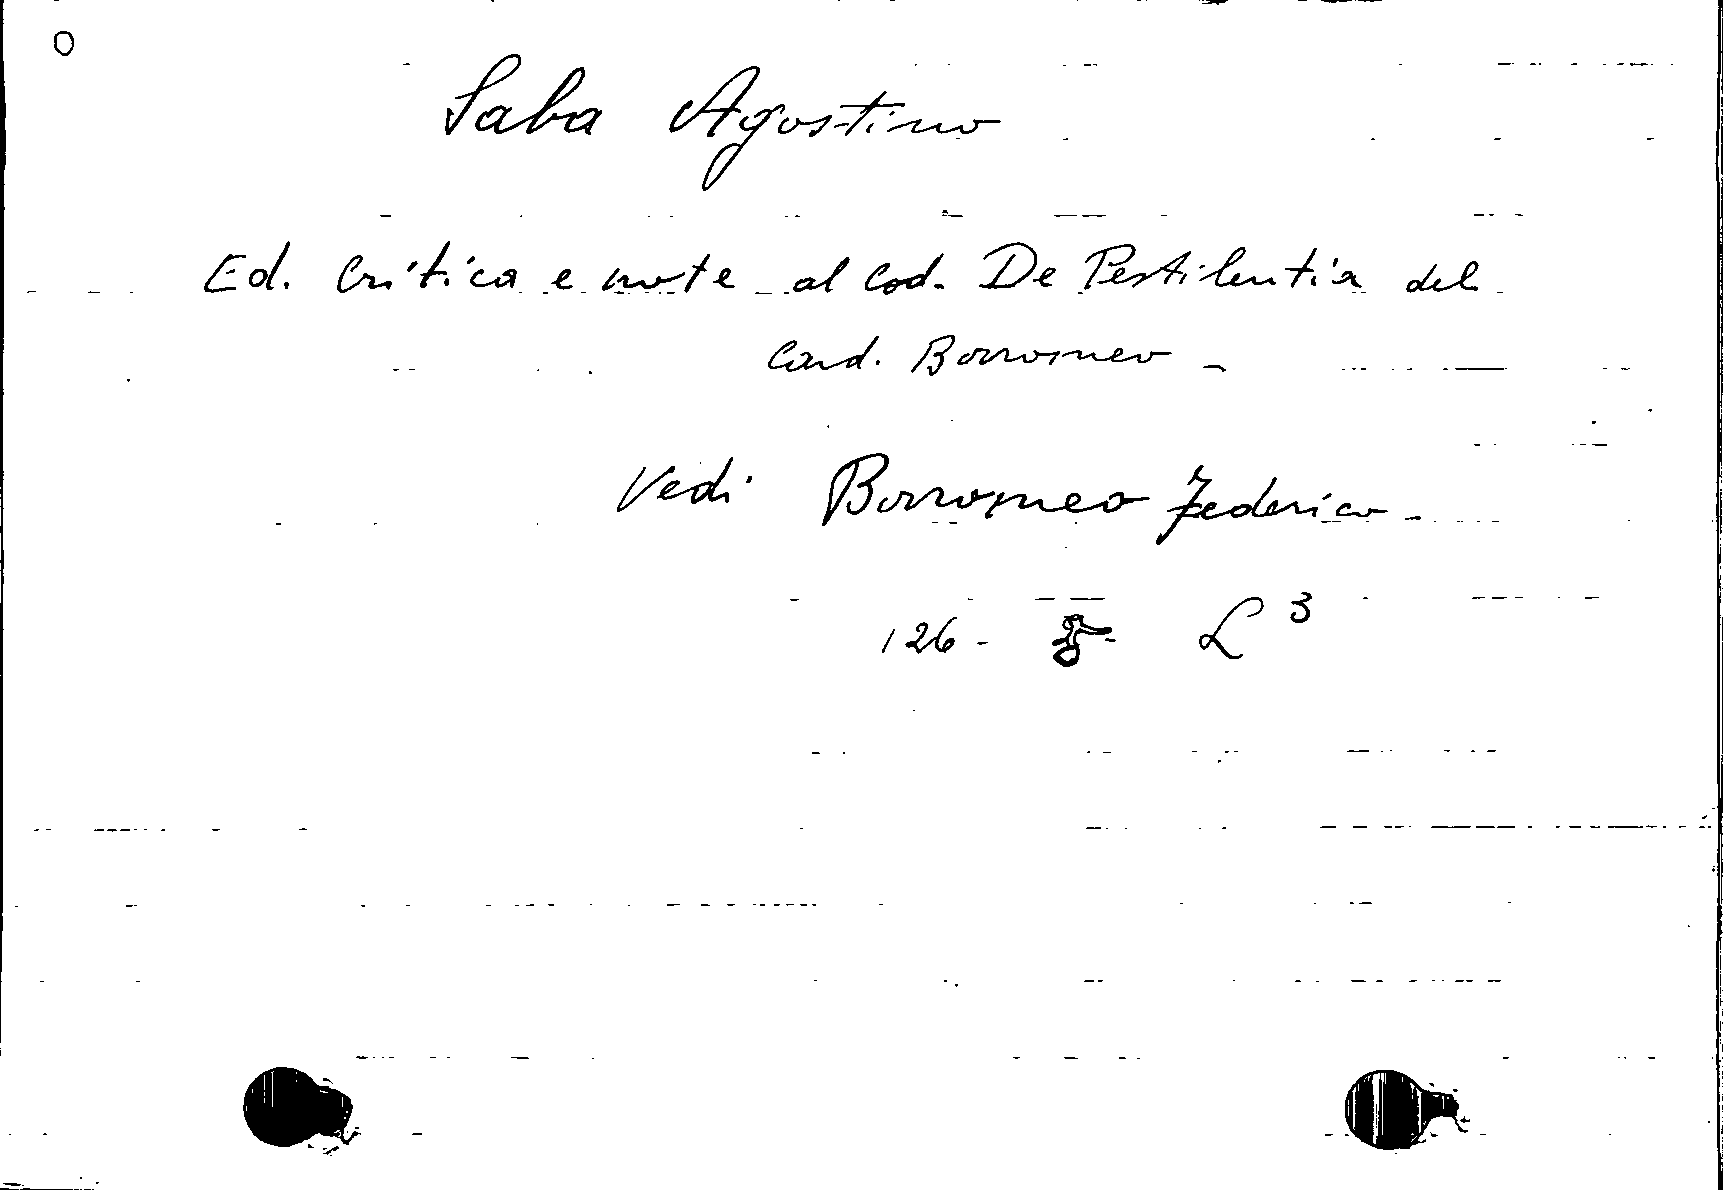 Saba Agostino
Ed. Critica e note al Cod. De Pestilentia del
Card. Borromeo -
Vedi Borromeo Federico -
126 - L 3